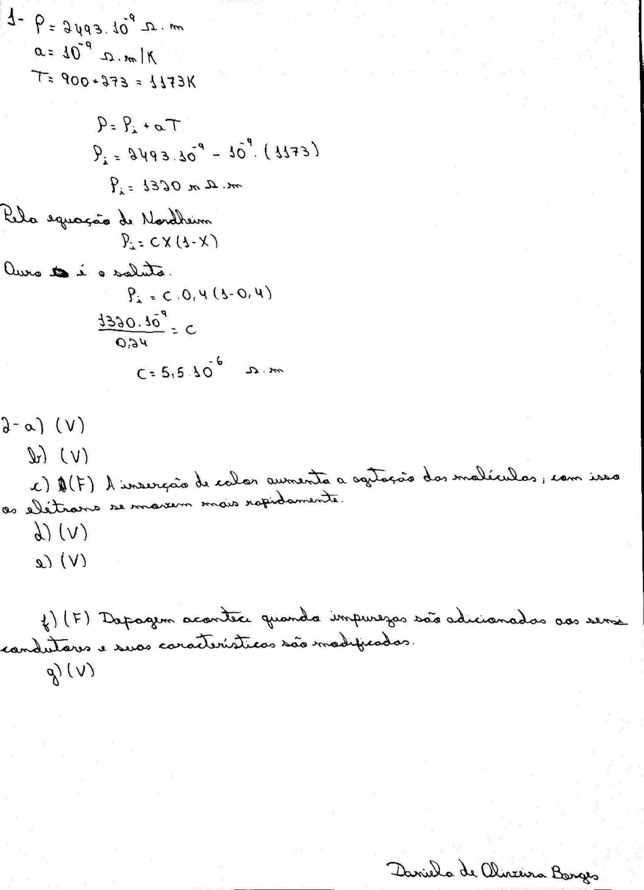 1- ρ = 2493.10⁻⁹ Ω.m
a = 10⁻⁹ Ω.m/K
T = 900+273 = 1173K
ρ = ρi + aT
ρi = 2493.10⁻⁹ - 10⁻⁹.(1173)
ρi = 1320 n Ω.m
Pela equação de Nordheim
ρi = CX(1-X)
Ouro é o soluto.
ρi = C.0,4(1-0,4)
1320.10⁻⁹/0,24 = C
C = 5,5.10⁻⁶ Ω.m
2- a) (V)
b) (V)
c) (F) A inserção de calor aumenta a agitação das moléculas, com isso
os elétrons se movem mais rapidamente.
d) (V)
e) (V)
f) (F) Dopagem acontece quando impurezas são adicionadas aos semi
condutores e suas características são modificadas.
g) (V)
Daniela de Oliveira Borges